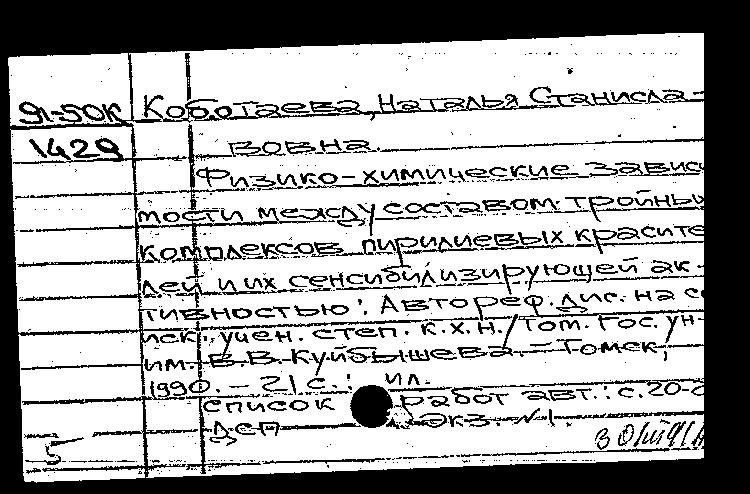 91-50К Коботаева, Наталья Станисла-
1429 вовна.
Физико-химические зависи
мости между составом тройны
комплексов пирилиевых красите
лей и их сенсибилизирующей ак-
тивностью: Автореф. дис. на со
иск. учен. степ. к.х.н. / Том. гос. ун-
им. В.В. Куйбышева. - Томск,
1990. - 21 с.: ил.
Список работ авт.: с. 20-2
ДСП Экз. №1.
5